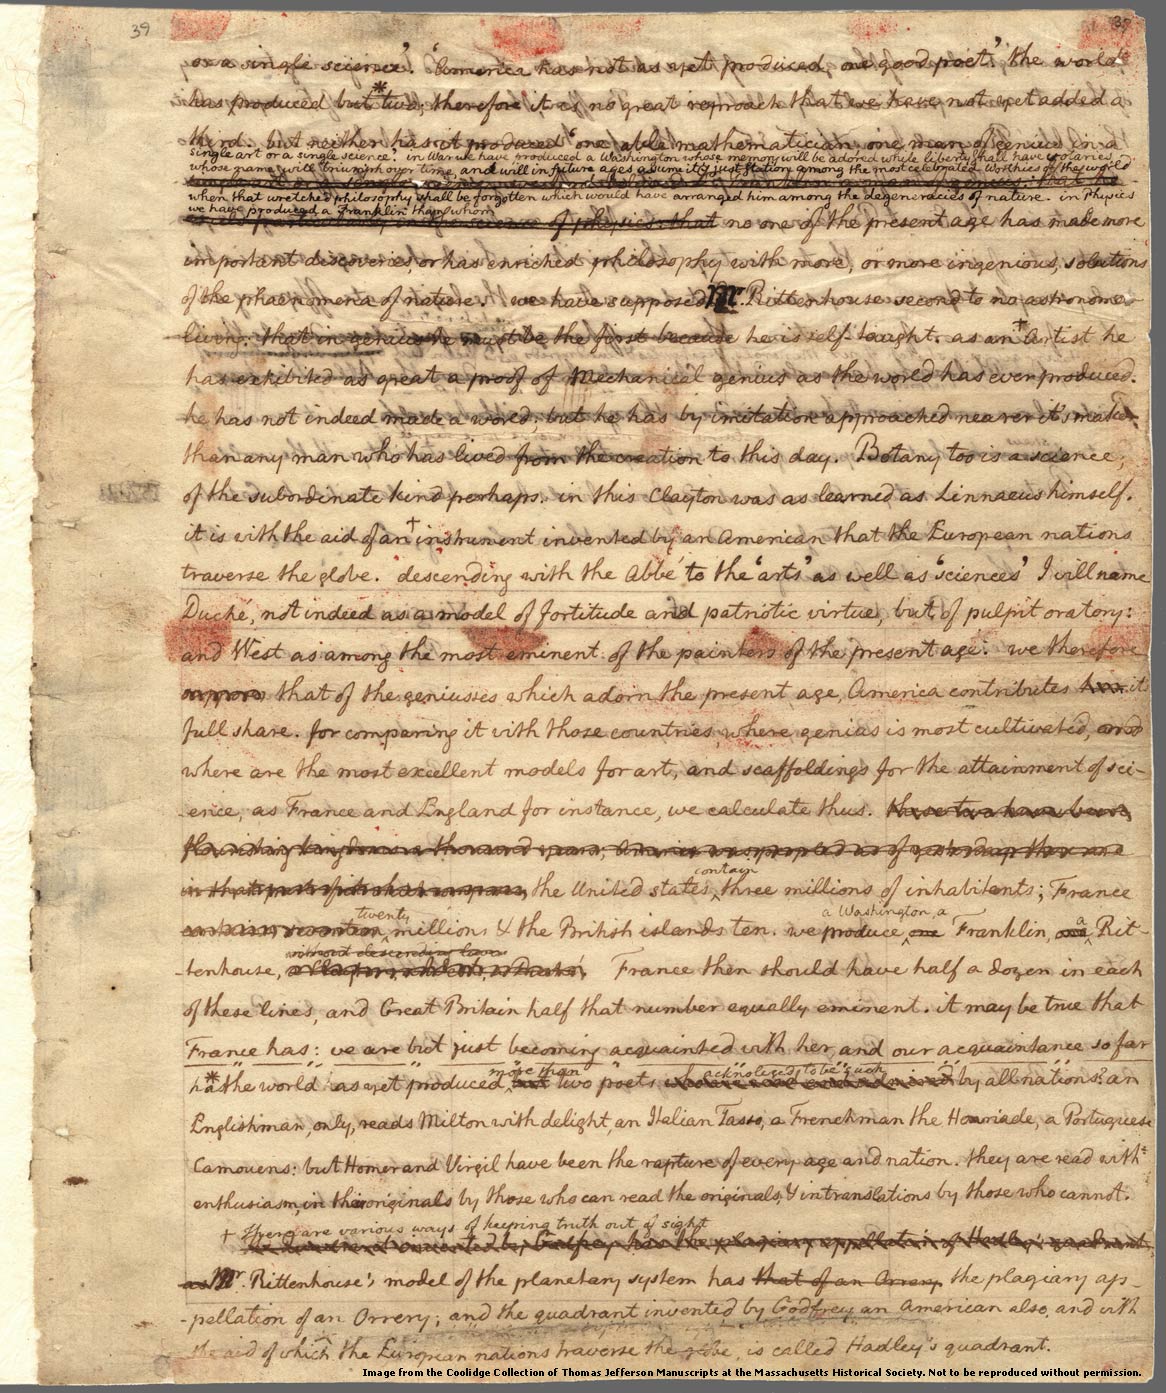 39
39
or a single science'. 'America has not as yet produced, one good poet.' the world
has produced but *two; therefore it is no great reproach that we have not yet added a
third. but neither has it produced 'one able mathematician, one man of genius in a
single art or a single science.' in War we have produced a Washington whose memory will be adored while liberty shall have votaries,
whose name will triumph over time, and will in future ages assume it's just station among the most celebrated worthies of the world
when that wretched philosophy shall be forgotten which would have arranged him among the degeneracies of nature. in Physics
we have produced a Franklin than whom
in the science of physics. that no one of the present age has made more
important discoveries, or has enriched philosophy with more, or more ingenious, solutions
of the phaenomena of nature. we have supposed Mr. Rittenhouse second to no astronomer
living: that in genius he must be the first because he is self-taught. as an † artist he
has exhibited as great a proof of Mechanical genius as the world has ever produced.
he has not indeed made a world; but he has by imitation approached nearer it's maker
than any man who has lived from the creation to this day. Botany too is a science,
of the subordinate kind perhaps. in this Clayton was as learned as Linnaeus himself.
it is with the aid of an † instrument invented by an American that the European nations
traverse the globe. descending with the Abbé to the 'arts' as well as 'sciences' I will name
Duché, not indeed as a model of fortitude and patriotic virtue, but of pulpit oratory:
and West as among the most eminent of the painters of the present age. we therefore
suppose that of the geniusses which adorn the present age, America contributes it's
full share. for comparing it with those countries, where genius is most cultivated, and
where are the most excellent models for art, and scaffoldings for the attainment of sci-
-ence, as France and England for instance, we calculate thus. these two have been
flourishing kingdoms a thousand years, America was peopled as of yesterday.
contain
the United states, three millions of inhabitants; France
twenty
a Washington, a
a
contains seventeen millions & the British islands ten. we produce one Franklin, Rit-
without descending lower
-tenhouse, France then should have half a dozen in each
of these lines, and Great Britain half that number equally eminent. it may be true that
France has: we are but just becoming acquainted with her, and our acquaintance so far
more than
acknoleged to be such
* has the world as yet produced but two poets by all nations? an
Englishman, only, reads Milton with delight, an Italian Tasso, a Frenchman the Henriade, a Portuguese
Camouens: but Homer and Virgil have been the rapture of every age and nation. they are read with
enthusiasm in their originals by those who can read the originals, & in translations by those who cannot.
† There are various ways of keeping truth out of sight
the quadrant invented by Godfrey has the plagiary appellation of Hadley's quadrant,
as Mr. Rittenhouse's model of the planetary system has that of an Orrery the plagiary ap-
-pellation of an Orrery; and the quadrant invented by Godfrey an American also, and with
the aid of which the European nations traverse the globe, is called Hadley's quadrant.
Image from the Coolidge Collection of Thomas Jefferson Manuscripts at the Massachusetts Historical Society. Not to be reproduced without permission.